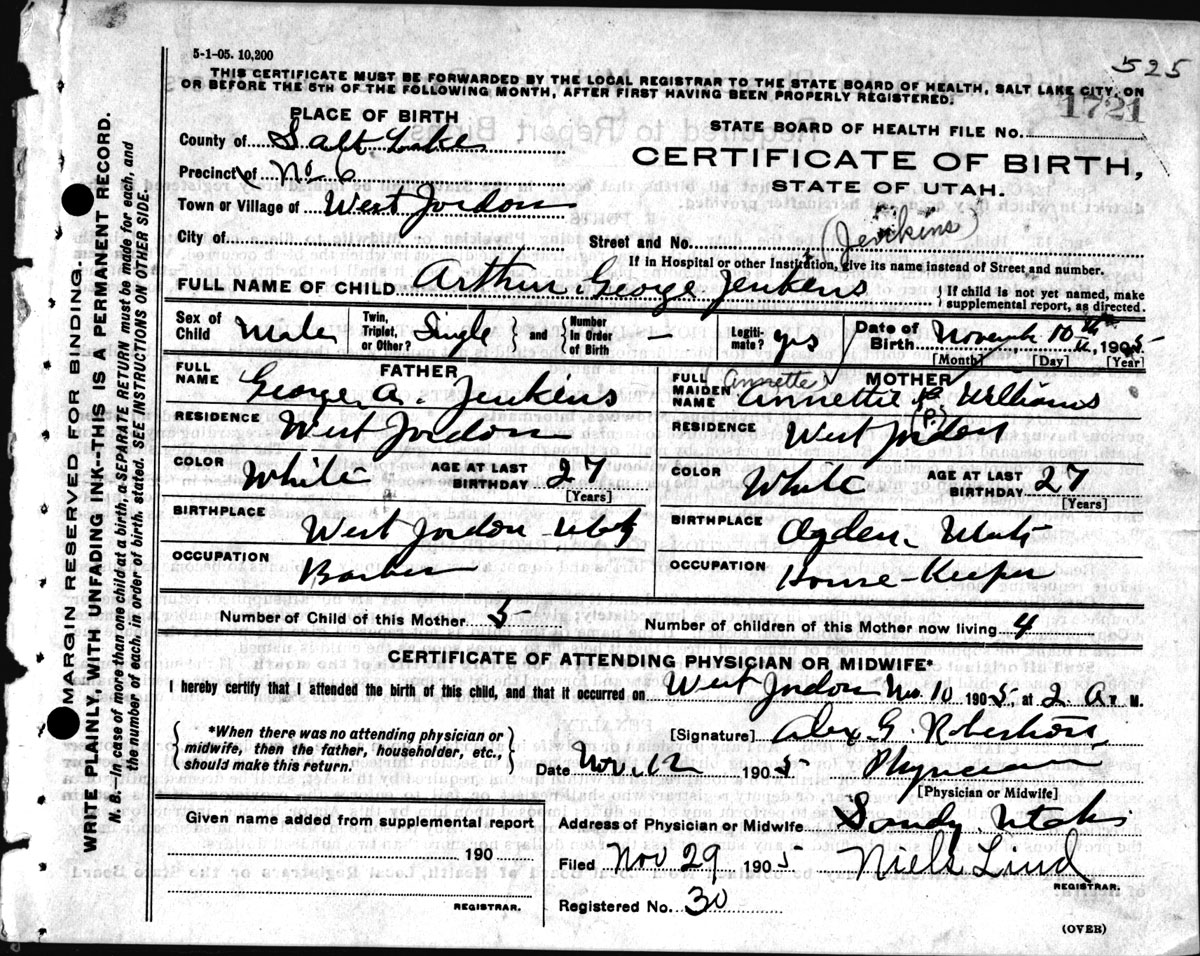 5-1-05. 10,200
525
THIS CERTIFICATE MUST BE FORWARDED BY THE LOCAL REGISTRAR TO THE STATE BOARD OF HEALTH, SALT LAKE CITY, ON
OR BEFORE THE 5TH OF THE FOLLOWING MONTH, AFTER FIRST HAVING BEEN PROPERLY REGISTERED.
1721
PLACE OF BIRTH
STATE BOARD OF HEALTH FILE No.
County of Salt Lake
CERTIFICATE OF BIRTH,
Precinct of No 6
STATE OF UTAH.
Town or Village of West Jordon
(Jenkins)
City of
Street and No.
If in Hospital or other Institution, give its name instead of Street and number.
FULL NAME OF CHILD Arthur George Jenkens
{ If child is not yet named, make supplemental report, as directed.
Sex of Child Male Twin, Triplet, or Other? Single } and { Number in Order of Birth — Legiti-mate? yes Date of Birth November 10th, 1905
[Month] [Day] [Year]
FATHER
MOTHER
FULL NAME George A. Jenkins
FULL MAIDEN NAME (Annette) Annettie Williams
(P.)
RESIDENCE West Jordon
RESIDENCE West Jordon
COLOR White AGE AT LAST BIRTHDAY 27
[Years]
COLOR White AGE AT LAST BIRTHDAY 27
[Years]
BIRTHPLACE West Jordon Utah
BIRTHPLACE Ogden Utah
OCCUPATION Barber
OCCUPATION House-Keeper
Number of Child of this Mother 5
Number of children of this Mother now living 4
CERTIFICATE OF ATTENDING PHYSICIAN OR MIDWIFE*
I hereby certify that I attended the birth of this child, and that it occurred on West Jordon Nov. 10 1905, at 2 A. M.
{ *When there was no attending physician or midwife, then the father, householder, etc., should make this return. }
[Signature] Alex G. Robertson
Date Nov. 12 1905 Physician
[Physician or Midwife]
Given name added from supplemental report
190
REGISTRAR.
Address of Physician or Midwife Sandy Utah
Filed Nov 29 1905 Niels Lind
REGISTRAR.
Registered No. 30
(OVER)
MARGIN RESERVED FOR BINDING.
WRITE PLAINLY, WITH UNFADING INK--THIS IS A PERMANENT RECORD.
N. B.—In case of more than one child at a birth, a SEPARATE RETURN must be made for each, and
the number of each, in order of birth, stated. SEE INSTRUCTIONS ON OTHER SIDE.